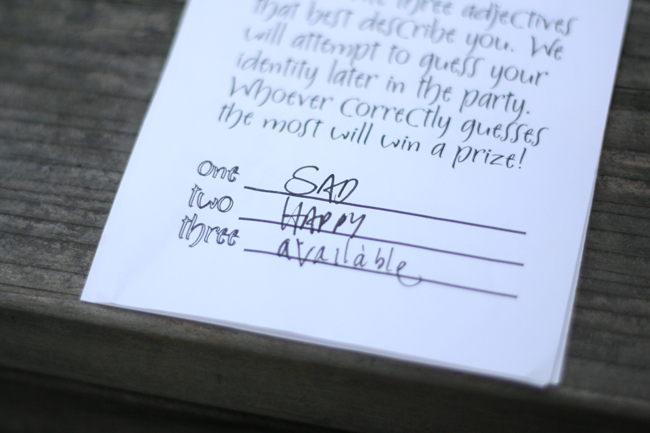 three adjectives
that best describe you. We
will attempt to guess your
identity later in the party.
Whoever correctly guesses
the most will win a prize!
one SAD
two HAPPY
three available